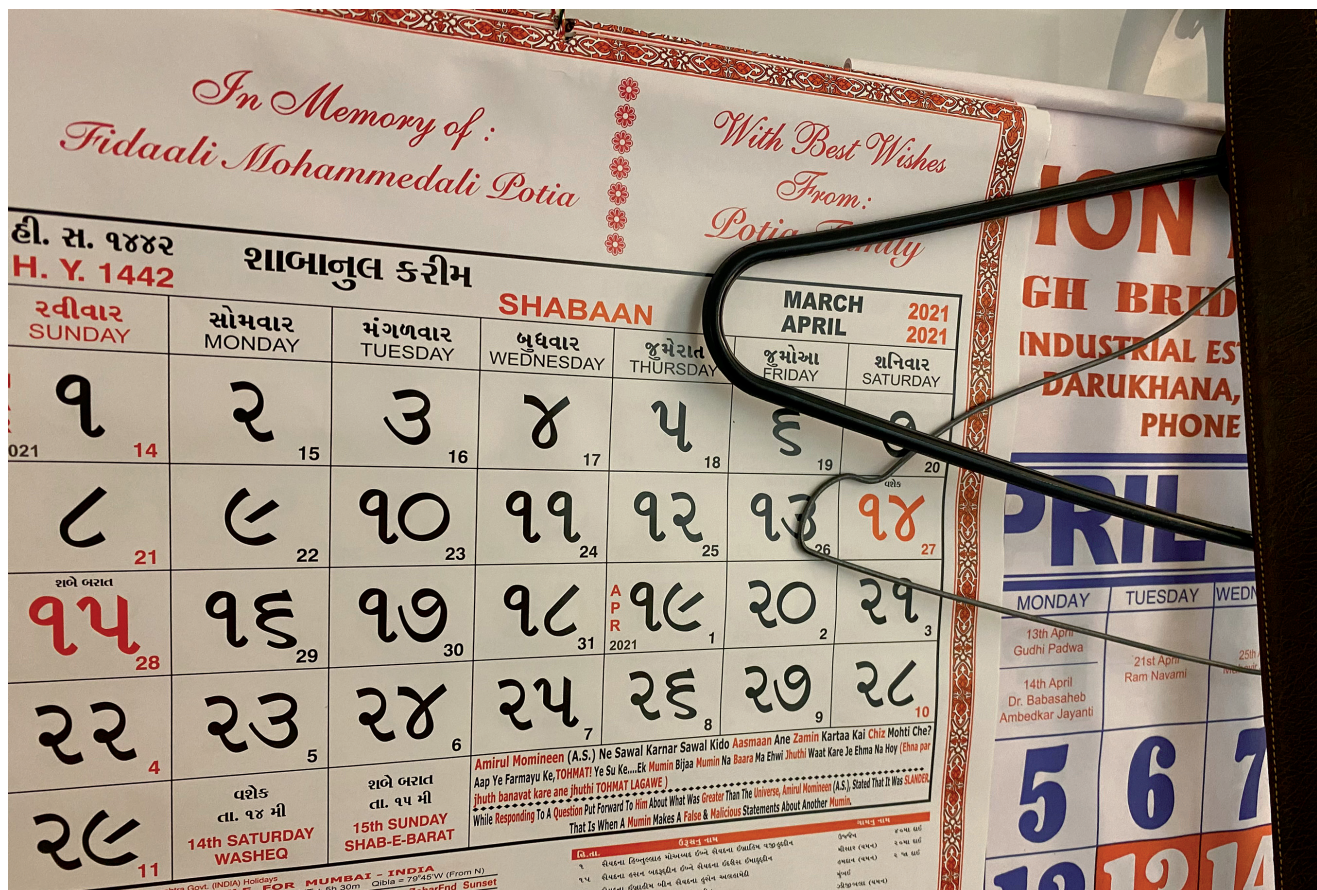 In Memory of :
Fidaali Mohammedali Potia
With Best Wishes
From:
Potia Family
હી. સ. ૧૪૪૨
H. Y. 1442
શાબાનુલ કરીમ
SHABAAN
MARCH 2021
APRIL 2021
રવીવાર સોમવાર મંગળવાર બુધવાર જુમેરાત જુમોઆ શનિવાર
SUNDAY MONDAY TUESDAY WEDNESDAY THURSDAY FRIDAY SATURDAY
૧ ૨ ૩ ૪ ૫ ૬ ૭
021 14 15 16 17 18 19 20
વશેક
૮ ૯ ૧૦ ૧૧ ૧૨ ૧૩ ૧૪
21 22 23 24 25 26 27
શબે બરાત
APR
૧૫ ૧૬ ૧૭ ૧૮ ૧૯ ૨૦ ૨૧
28 29 30 31 2021 1 2 3
૨૨ ૨૩ ૨૪ ૨૫ ૨૬ ૨૭ ૨૮
4 5 6 7 8 9 10
૨૯
11
વશેક
તા. ૧૪ મી
14th SATURDAY
WASHEQ
શબે બરાત
તા. ૧૫ મી
15th SUNDAY
SHAB-E-BARAT
Amirul Momineen (A.S.) Ne Sawal Karnar Sawal Kido Aasmaan Ane Zamin Kartaa Kai Chiz Mohti Che?
Aap Ye Farmayu Ke,TOHMAT! Ye Su Ke....Ek Mumin Bijaa Mumin Na Baara Ma Ehwi Jhuthi Waat Kare Je Ehma Na Hoy (Ehna par
jhuth banavat kare ane jhuthi TOHMAT LAGAWE )
While Responding To A Question Put Forward To Him About What Was Greater Than The Universe, Amirul Momineen (A.S.), Stated That It Was SLANDER,
That Is When A Mumin Makes A False & Malicious Statements About Another Mumin.
Govt. (INDIA) Holidays
FOR MUMBAI - INDIA
5h 30m Qibla = 79°45'W (From N)
End Sunset
હિ.તા.
ION
GH BRID
INDUSTRIAL EST
DARUKHANA,
PHONE
PRIL
MONDAY TUESDAY WEDN
13th April
Gudhi Padwa
14th April
Dr. Babasaheb
Ambedkar Jayanti
21st April
Ram Navami
25th
5 6 7
12 13 14